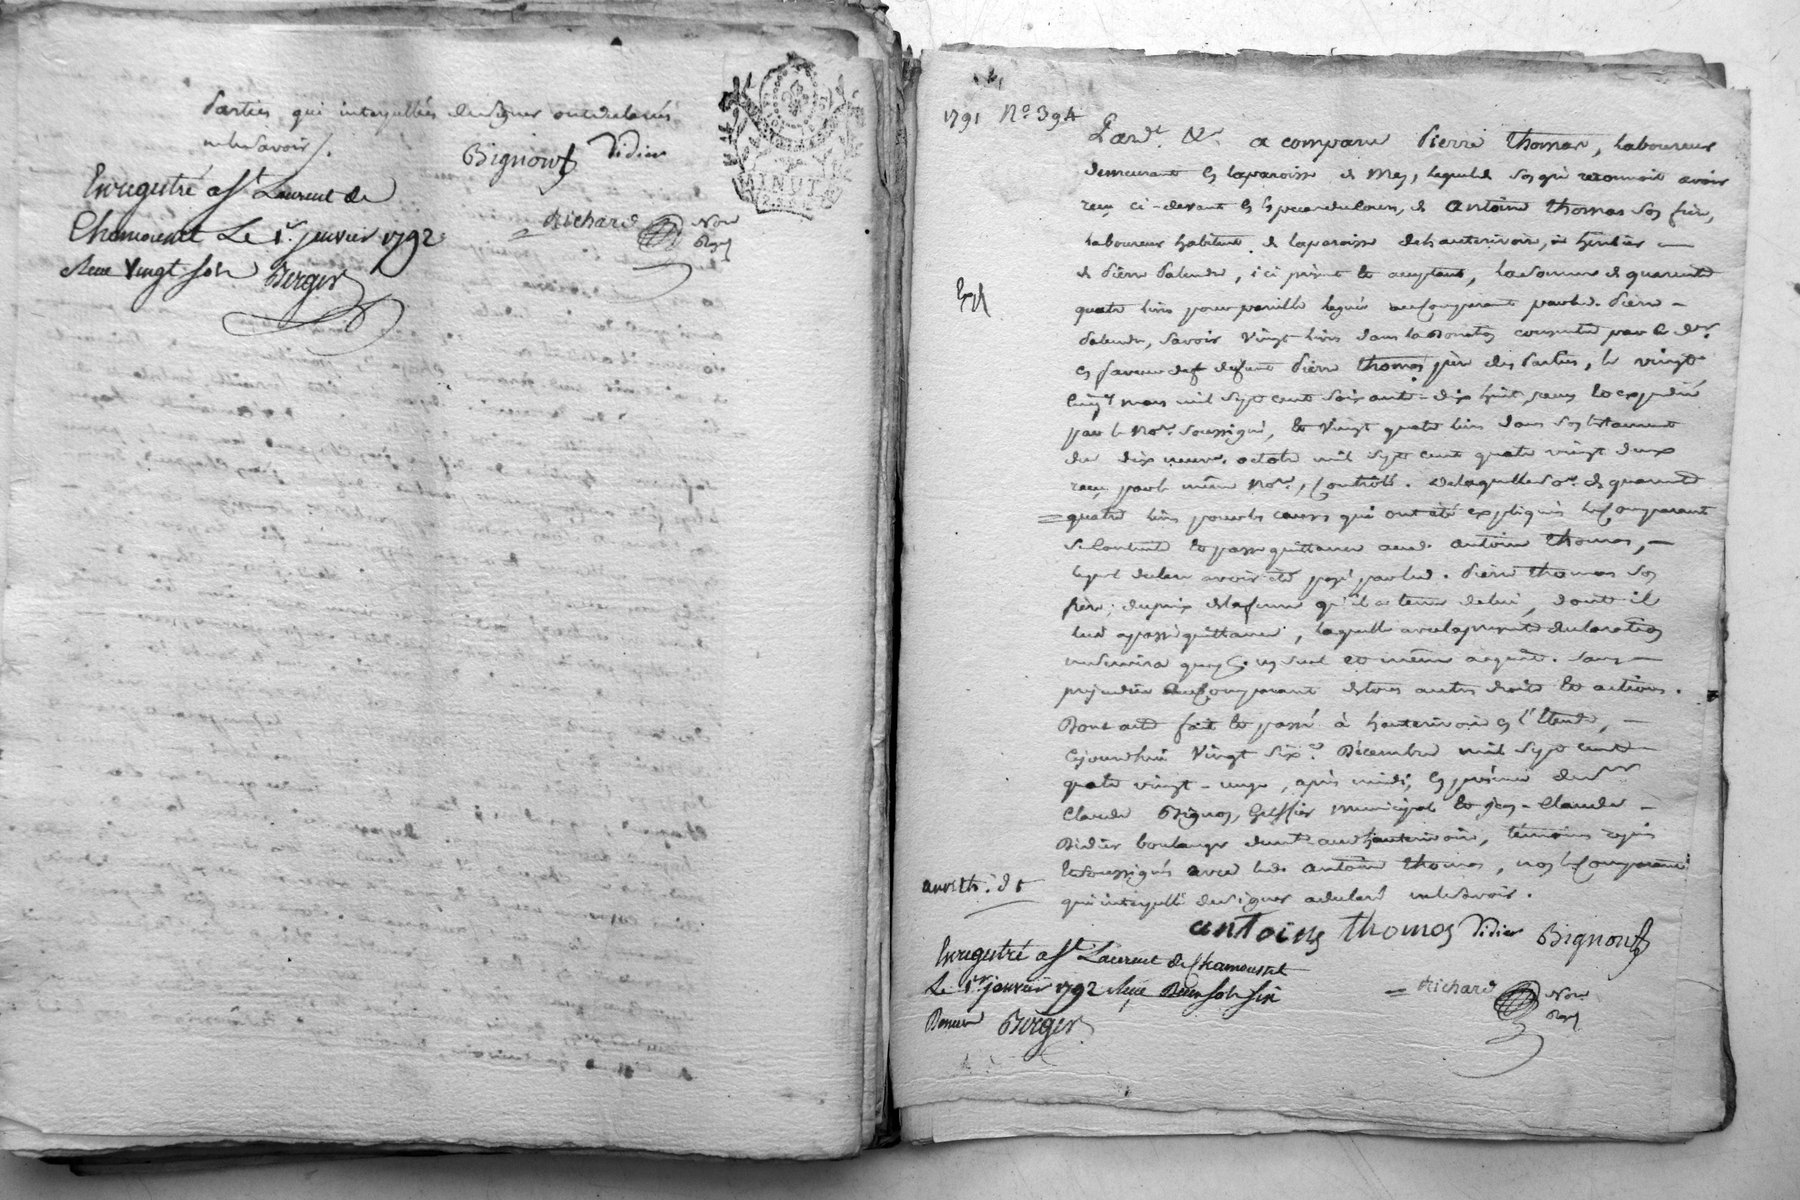 Parties qui interpellées de signer ont declarés
ne le savoir /.
Bignon Didier
MINUTE
Enregistré a St Laurent de
Chamousset Le 1er janvier 1792
Recu Vingt sols Berger
Richard Nore Royl
1791 No 394
Pardt &c a comparu Pierre Thomas, Laboureur
demeurant en la paroisse de Mey, lequel de son gré reconnoit avoir
reçu ci-devant en espece du Cours, de Antoine Thomas son frere,
Laboureur habitant de la paroisse de hauterivoire, heritier
de Pierre Palendre, ici présent et acceptant, la somme de quarente
quatre livres pour pareille leguée au Comparant par led. Pierre
Palendre, savoir vingt livres dans la Donation consentie par ce der.
en faveur de defunt Pierre Thomas père des Parties, le vingt
Cinq mars mil sept cent soixante-dix huit, reçue et expediée
par le Nore. soussigné, et vingt quatre livres dans son testament
du dix neuve. octobre mil sept cent quatre vingt deux
reçu par le même Nore., Contrôlé. De laquelle so.e de quarente
quatre livres pour les causes qui ont été expliquées le Comparant
se Contente et passe quittance aud. Antoine Thomas,
lequel declare avoir été payé par led. Pierre Thomas son
frere, du prix de la ferme qu'il a tenue de lui, dont il
lui a passé quittance, laquelle avec la presente declaration
ne servira que d'un seul et même acquit. Sans
prejudice au Comparant de tous autres droits et actions.
Dont acte fait et passé à hauterivoire en l'Etude,
Cejourdhui Vingt Sixe. Décembre mil sept cent
quatre vingt-onze, après midi, en présence de sr
Claude Bignon, Greffier municipal et Jean-Claude
Didier boulanger demt. aud hauterivoire, témoins requis
et soussignés avec led. Antoine Thomas, non le Comparant
qui interpellé de signer a declaré ne le savoir.
antoine thomas Didier Bignon
Enregistré a St Laurent de Chamousset
Le 1er janvier 1792 Reçu Dix sols six
Deniers Berger
Richard Nore Royl